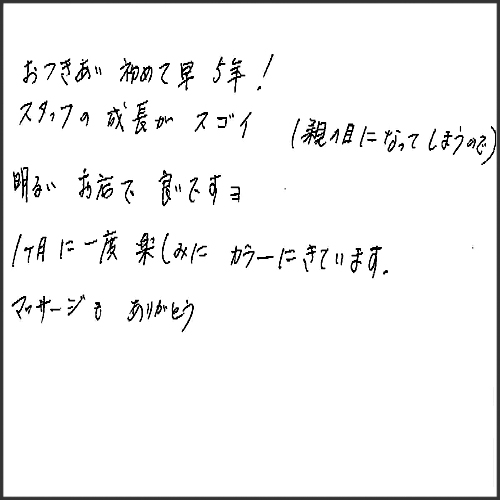 おつきあい初めて早5年！
スタッフの成長がスゴイ（親目になってしまうので）
明るいお店で良いですヨ
1ヶ月に一度楽しみにカラーにきています。
マッサージもありがとう